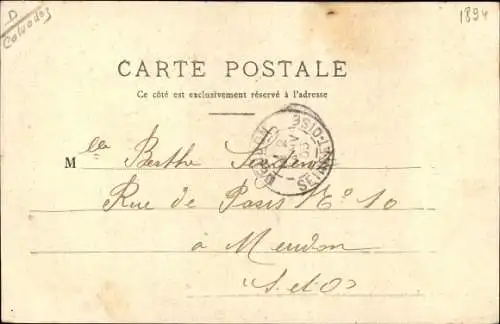 D
Calvados
1894
CARTE POSTALE
Ce côté est exclusivement réservé à l'adresse
Mlle Berthe
Rue de Paris No 10
à Meudon
(S. et O)
SEINE-ET-OISE